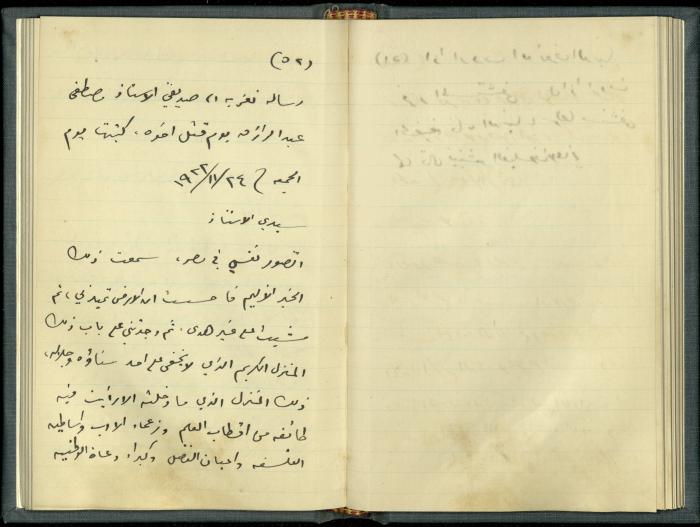 (٥٢)
رسالة تعزية الى صديقي الاستاذ مصطفى
عبد الرازق يوم قتل اخوه، كتبتها يوم
الجمعة ٢٤/١١/١٩٢٢
سيدي الاستاذ
اتصور نفسي في مصر، سمعت ذلك
الخبر الأليم فأحسست ان الارض تميد بي، ثم
مشيت على غير هدى. ثم وجدتني على باب ذلك
المنزل الكريم الذي لا يخفى على احد سناؤه وجلاله،
ذلك المنزل الذي ما دخلته الا رأيت فيه
طائفة من اقطاب العلم وزعماء الادب واساطين
الفلسفة واعيان الفضل وكبراء دعاة الوطنية